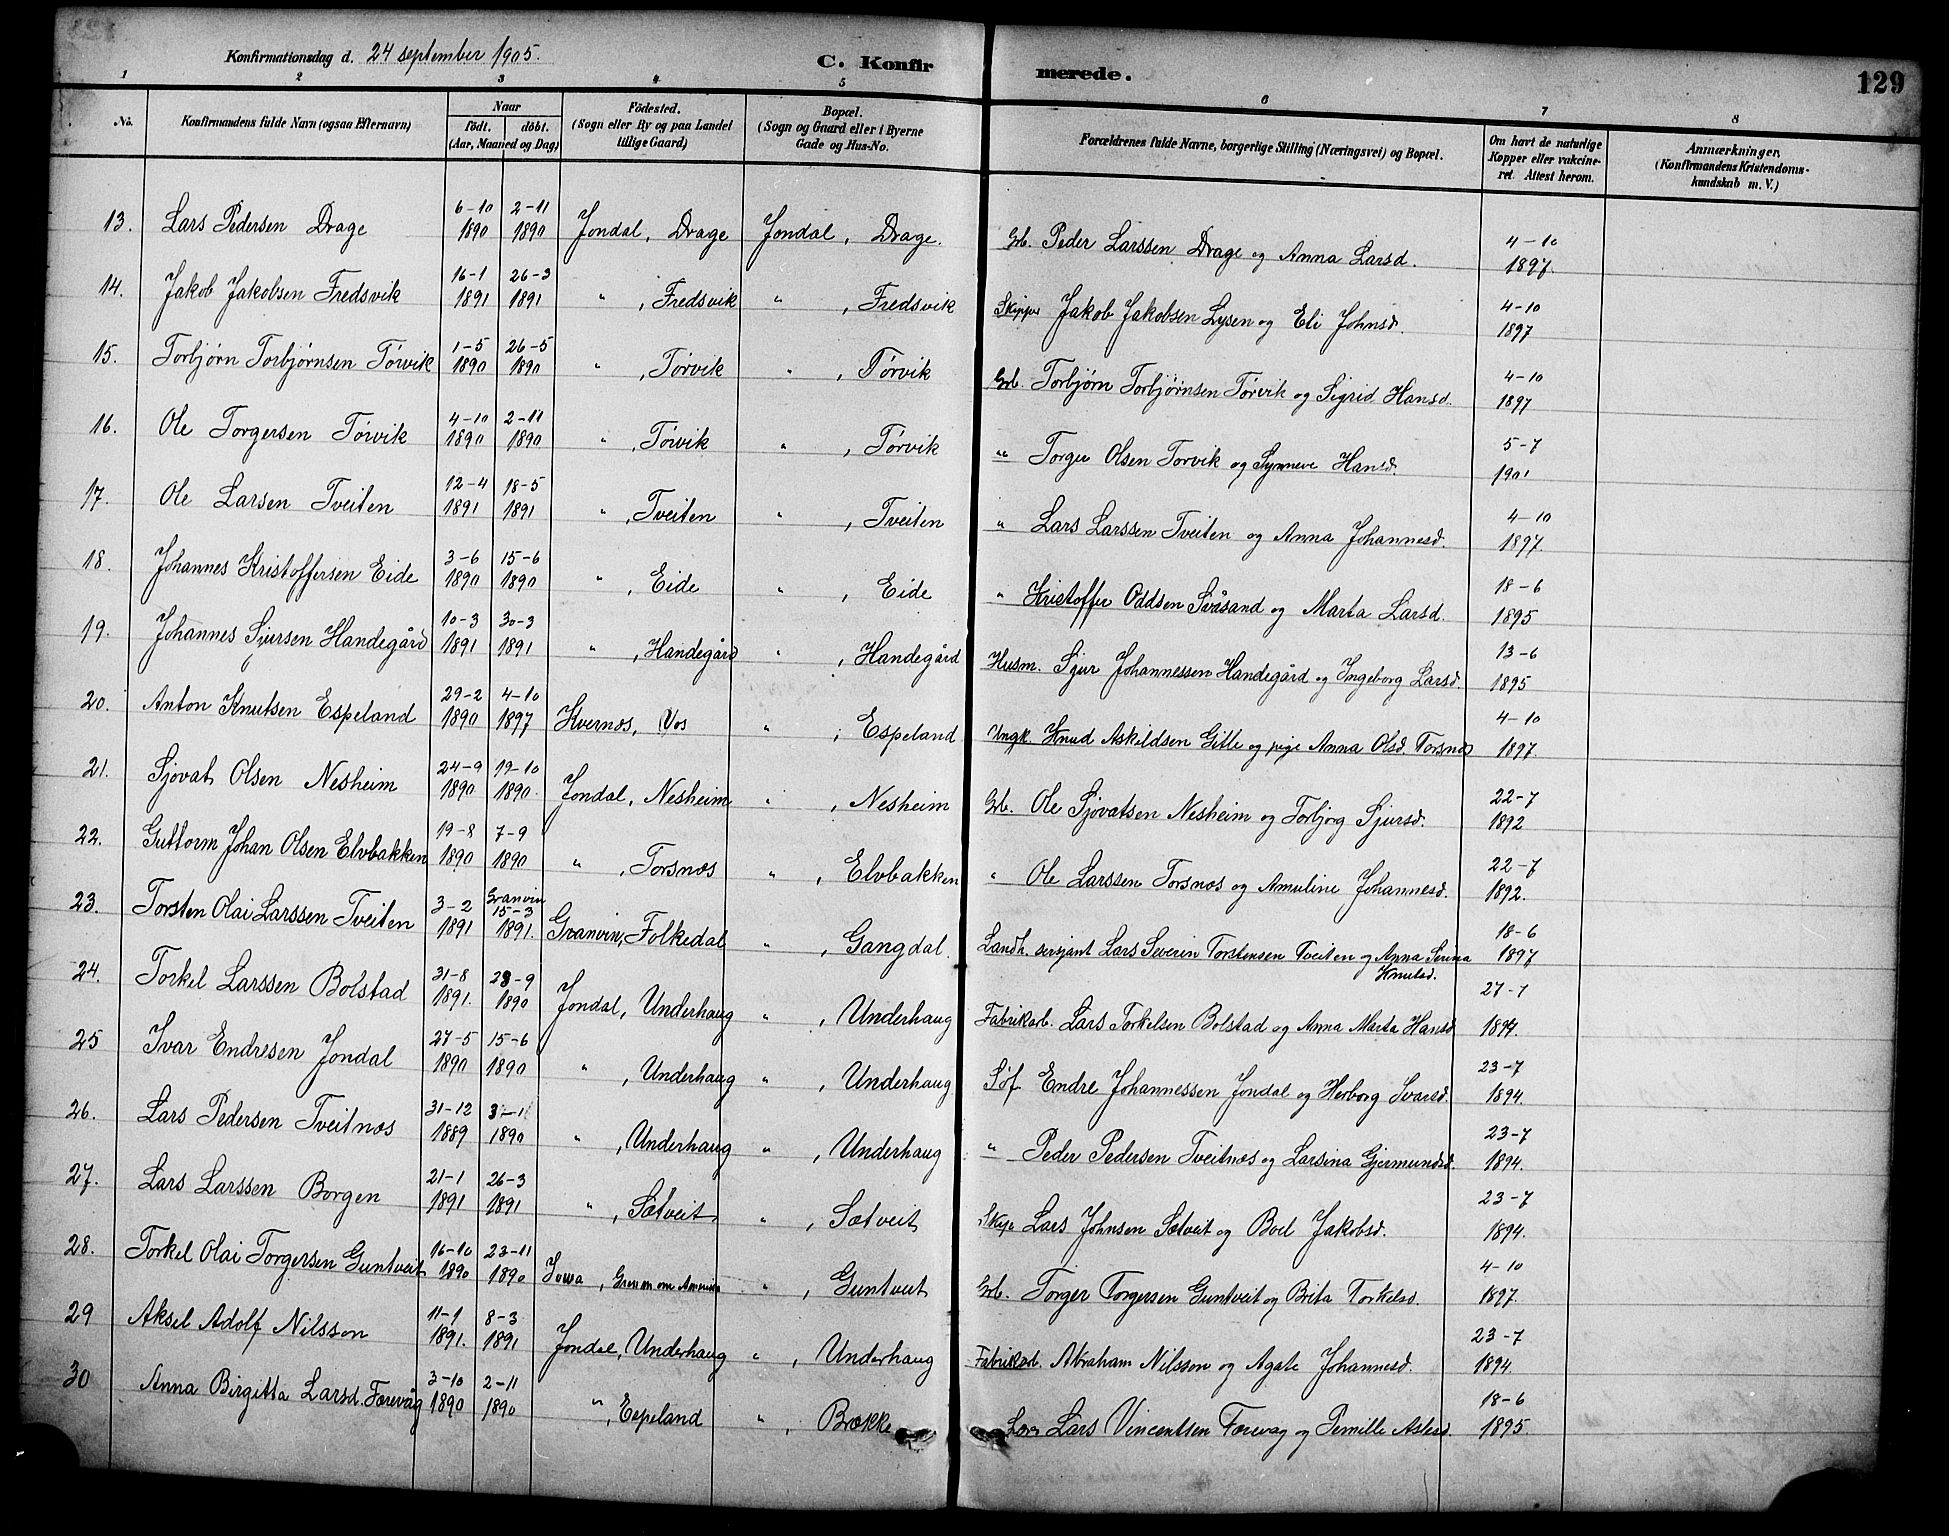 Konfirmationsdag d. 24 september 1905.
C. Konfirmerede.
129
1 2 3 4 5 6 7 8
No. Konfirmandens fulde Navn (ogsaa Efternavn) Naar født. døbt. (Aar, Maaned og Dag) Fødested. (Sogn eller By og paa Landet tillige Gaard) Bopæl. (Sogn og Gaard eller i Byerne Gade og Hus-No. Forældrenes fulde Navne, borgerlige Stilling (Næringsvei) og Bopæl. Om havt de naturlige Kopper eller vakcineret. Attest herom. Anmærkninger. (Konfirmandens Kristendomskundskab m. V.)
13. Lars Pedersen Drage 6-10 1890 2-11 1890 Jondal, Drage Jondal, Drage. Gb. Peder Larssen Drage og Anna Larsd. 4-10 1897.
14. Jakob Jakobsen Fredsvik 16-1 1891 26-3 1891 " , Fredsvik " , Fredsvik Skipper Jakob Jakobsen Lysen og Eli Johnsd. 4-10 1897
15. Torbjørn Torbjørnsen Tørvik 1-5 1890 26-5 1890 " , Tørvik " , Tørvik Gb. Torbjørn Torbjørnsen Tørvik og Sigrid Hansd. 4-10 1897
16. Ole Torgersen Tørvik 4-10 1890 2-11 1890 " , Tørvik " , Tørvik " Torger Olsen Torvik og Synneve Hansd. 5-7 1901
17. Ole Larsen Tveiten 12-4 1891 18-5 1891 " , Tveiten " , Tveiten " Lars Larssen Tveiten og Anna Johannesd. 4-10 1897.
18. Johannes Kristoffersen Eide 3-6 1890 15-6 1890 " , Eide " , Eide " Kristoffer Oddsen Svåsand og Marta Larsd. 18-6 1895
19. Johannes Sjursen Handegård 10-3 1891 30-3 1891 " , Handegård " , Handegård Husm. Sjur Johannessen Handegård og Ingeborg Larsd. 13-6 1895
20. Anton Knutsen Espeland 29-2 1890 4-10 1897 Kvernes, Vos " , Espeland Ungk. Knud Askeldsen Gille og pige Anna Olsd. Torsnæs 4-10 1897.
21. Sjovat Olsen Nesheim 24-9 1890 19-10 1890. Jondal, Nesheim " , Nesheim Gb. Ole Sjovatsen Nesheim og Torbjorg Sjursd. 22-7 1892
22. Guttorm Johan Olsen Elvbakken 19-8 1890 7-9 1890 " , Torsnæs " , Elvbakken " Ole Larssen Torsnæs og Amuline Johannesd. 22-7 1892.
23. Torsten Olai Larssen Tveiten 3-2 1891 Granvin 15-3 1891. Granvin, Folkedal " , Gangdal. Landh. sersjant Lars Severin Torstensen Tveiten og Anna Serina Knutsd. 18-6 1897
24. Torkel Larssen Bolstad 31-8 1891. 28-9 1890 Jondal, Underhaug " , Underhaug Fabrikarb. Lars Torkelsen Bolstad og Anna Marta Hansd 27-7 1894.
25 Ivar Endresen Jondal 27-5 1890 15-6 1890 " , Underhaug " , Underhaug Søf Endre Johannessen Jondal og Herborg Ivarsd. 23-7 1894.
26. Lars Pedersen Tveitnæs 31-12 1889 1890 " , Underhaug " , Underhaug " Peder Pedersen Tveitnæs og Larsina Gjermundsd. 23-7 1894.
27. Lars Larssen Borgen 21-1 1891 26-3 1891 " , Sætveit " , Sætveit Lars Johnsen Sætveit og Boel Jakobsd. 23-7 1894.
28. Torkel Olai Torgersen Guntveit 16-10 1890 23-11 1890 Iowa, " , Guntveit Gb. Torger Torgersen Guntveit og Brita Torkelsd. 4-10 1897.
29 Aksel Adolf Nilsson 11-1 1891. 8-3 1891 Jondal, Underhaug " , Underhaug Fabrikarb. Abraham Nilsson og Agate Johannesd. 23-7 1894.
30 Anna Birgitta Larsd. Færevåg 3-10 1890 2-11 1890 " , Espeland " , Brække Lars Vincentsen Færevag og Pernille Aslesd. 18-6 1895.